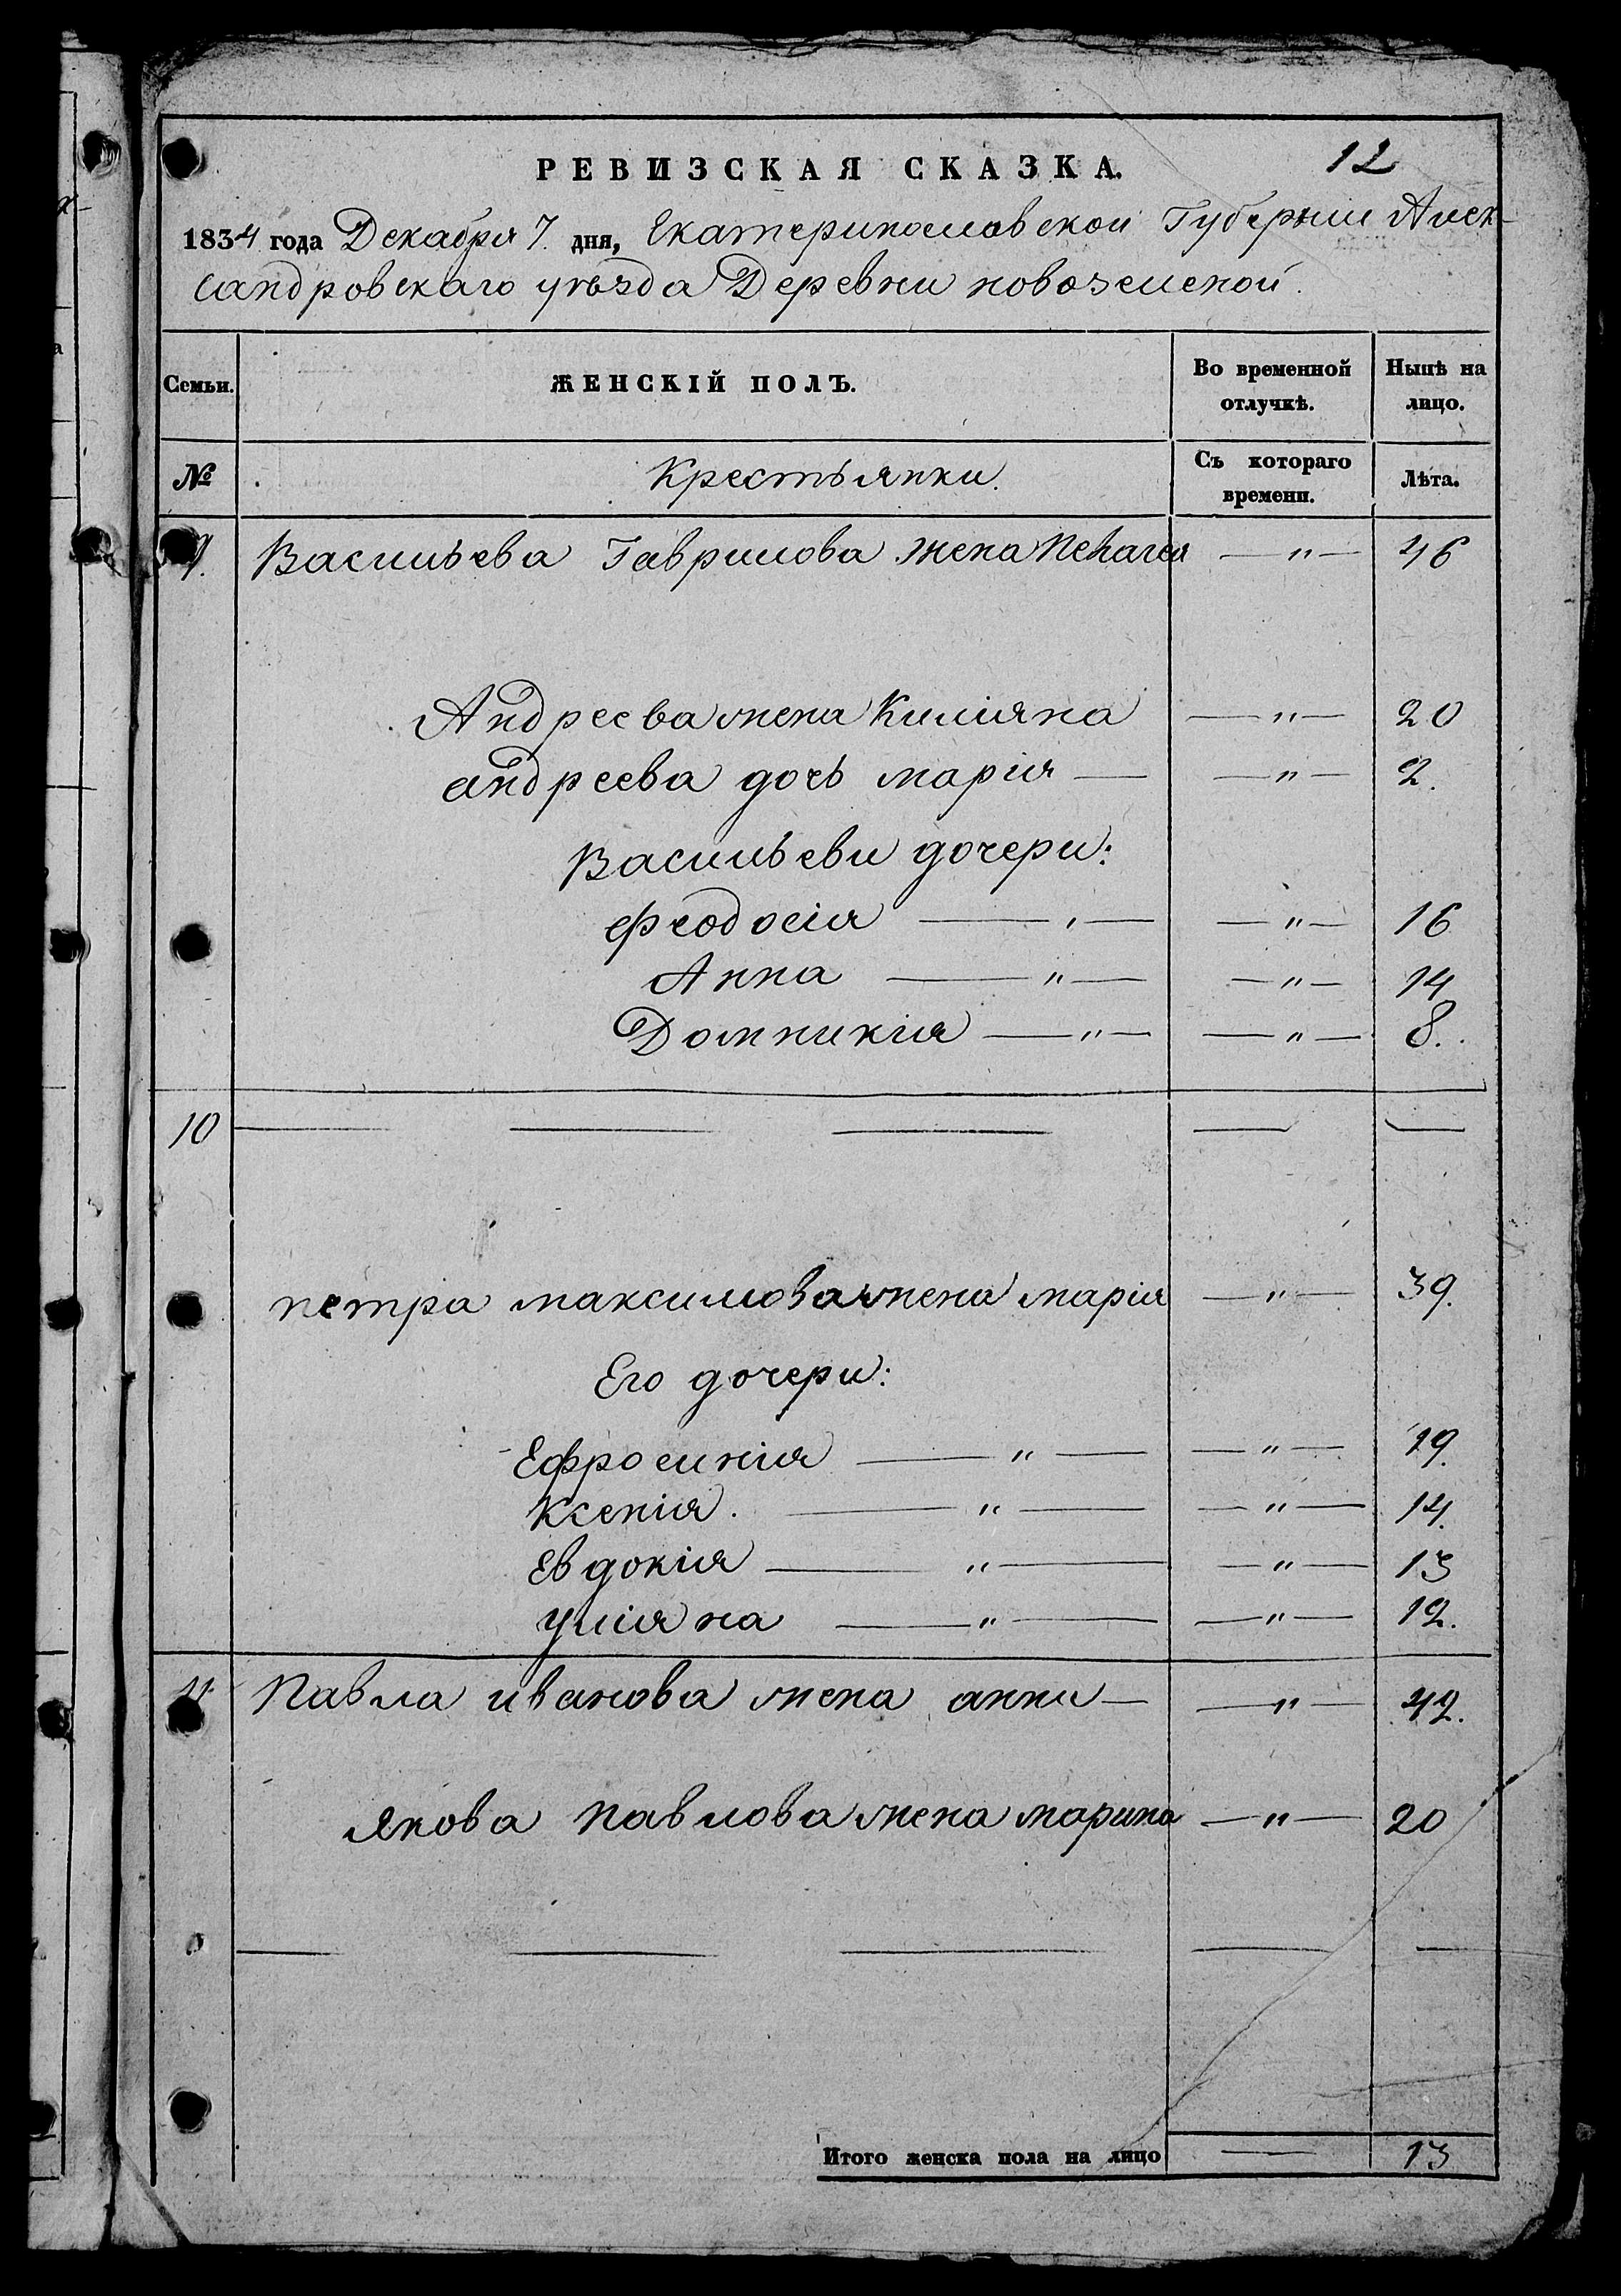 РЕВИЗСКАЯ СКАЗКА.
12
1834 года Декабря 7. дня, Екатеринославской Губернии Алек-
сандровскаго уѣзда Деревни новоземской.
Семьи.
ЖЕНСКІЙ ПОЛЪ.
Во временной отлучкѣ.
Нынѣ на лицо.
№
Крестьянки.
Съ котораго времени.
Лѣта.
9. Васильева Гаврилова жена Пелагея — " — 46
Андреева жена Килияна — " — 20
андреева дочь марія — — " — 2.
Васильеви дочери:
феодосія — " — — " — 16
Анна — " — — " — 14
Домникія — " — — " — 8.
10 — — — — —
петра максимова жена марія — " — 39.
Его дочери:
Ефросинія — " — — " — 19.
Ксенія. — " — — " — 14.
Евдокія — " — — " — 13
Уліяна — " — — " — 12.
11. Павла иванова жена анна — — " — 42.
якова павлова жена марина — " — 20
— — — — —
Итого женска пола на лицо — 13